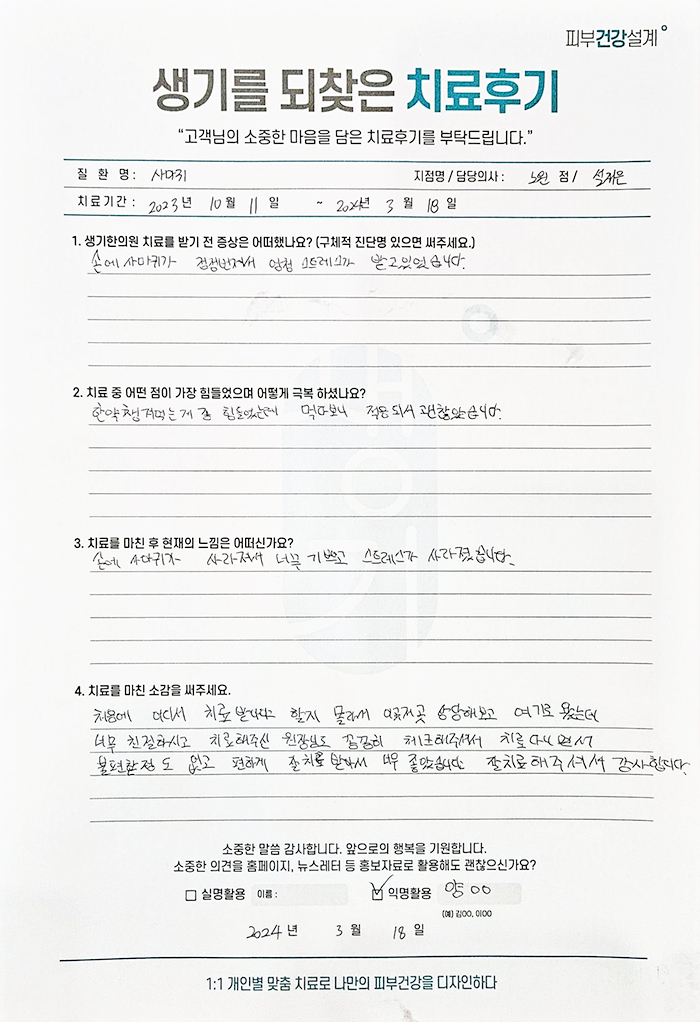 피부건강설계
생기를 되찾은 치료후기
“고객님의 소중한 마음을 담은 치료후기를 부탁드립니다.”
질 환 명 : 사마귀 지점명 / 담당의사 : 노원 점 / 설재은
치료기간 : 2023년 10월 11일 ~ 2024년 3월 18일
1. 생기한의원 치료를 받기 전 증상은 어떠했나요? (구체적 진단명 있으면 써주세요.)
손에 사마귀가 점점번져서 엄청 스트레스가 받고있었습니다.
2. 치료 중 어떤 점이 가장 힘들었으며 어떻게 극복 하셨나요?
한약챙겨먹는게 좀 힘들었는데 먹다보니 적응되서 괜찮았습니다.
3. 치료를 마친 후 현재의 느낌은 어떠신가요?
손에 사마귀가 사라져서 너무 기쁘고 스트레스가 사라졌습니다.
4. 치료를 마친 소감을 써주세요.
처음에 어디서 치료받아야 할지 몰라서 이곳저곳 상담해보고 여기로 왔는데
너무 친절하시고 치료해주신 원장님도 꼼꼼히 체크해주셔서 치료다니면서
불편한점도 없고 편하게 잘치료받아서 너무 좋았습니다 잘치료해주셔서 감사합니다.
소중한 말씀 감사합니다. 앞으로의 행복을 기원합니다.
소중한 의견을 홈페이지, 뉴스레터 등 홍보자료로 활용해도 괜찮으신가요?
실명활용 이름 : 익명활용 양OO
(예) 김OO, 이OO
2024년 3월 18일
1:1 개인별 맞춤 치료로 나만의 피부건강을 디자인하다